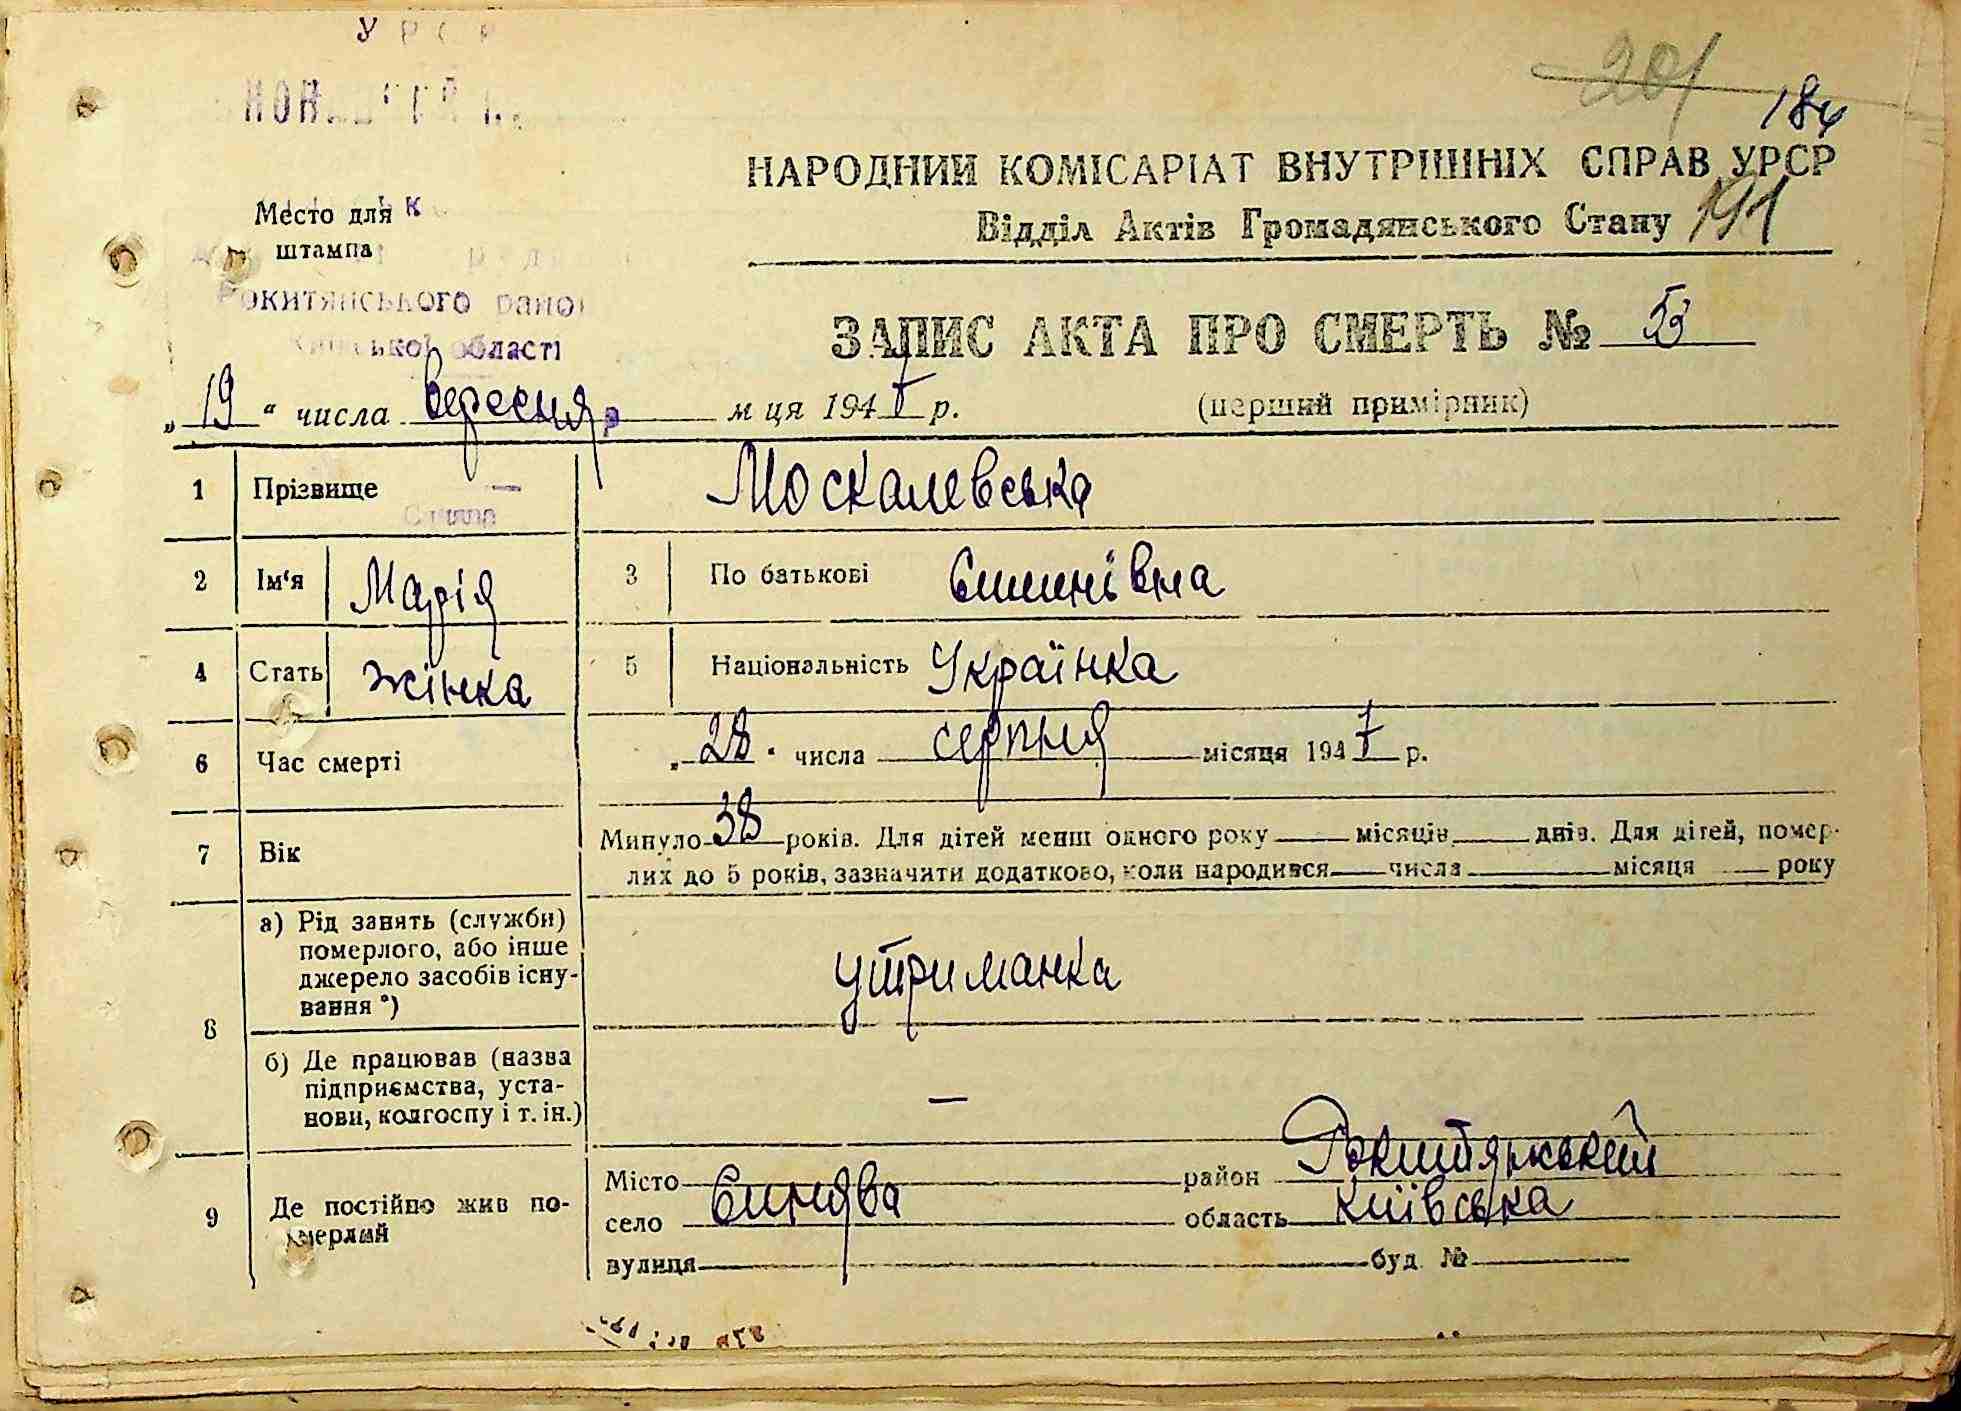 У Р С Р
201
184
НАРОДНИЙ КОМІСАРІАТ ВНУТРІШНІХ СПРАВ УРСР
Место для
штампа
Відділ Актів Громадянського Стану 191
Рокитянського райо
Київської області
ЗАПИС АКТА ПРО СМЕРТЬ № 53
„19“ числа вересня м ця 1947 р. (перший примірник)
1 Прізвище — Москалевська
2 Ім‘я Марія 3 По батькові
4 Стать жінка 5 Національність Українка
6 Час смерті „28" числа серпня місяця 1947 р.
7 Вік Минуло 38 років. Для дітей менш одного року — місяців — днів. Для дітей, помер-
лих до 5 років, зазначити додатково, коли народився — числа — місяця — року
8 а) Рід занять (служби)
померлого, або інше
джерело засобів існу-
вання *)
утриманка
б) Де працював (назва
підприємства, уста-
нови, колгоспу і т. ін.)
—
9 Де постійно жив по-
мерлий
Місто район Рокитянський
село Синява область Київська
вулиця буд №